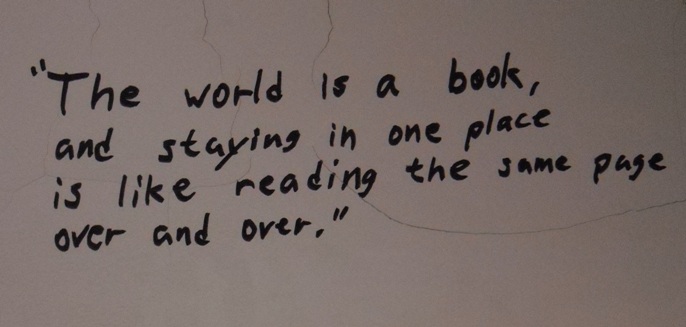 "The world is a book,
and staying in one place
is like reading the same page
over and over."